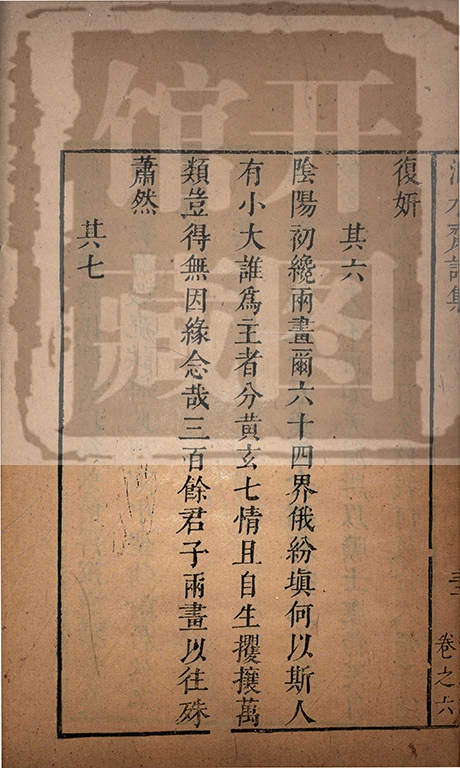 復妍
其六
陰陽初纔兩畫爾六十四界俄紛塡何以斯人
有小大誰為主者分黄玄七情且自生攖攘萬
類豈得無因緣念哉三百餘君子兩畫以往殊
蕭然
其七
卷之六
开图
馆藏